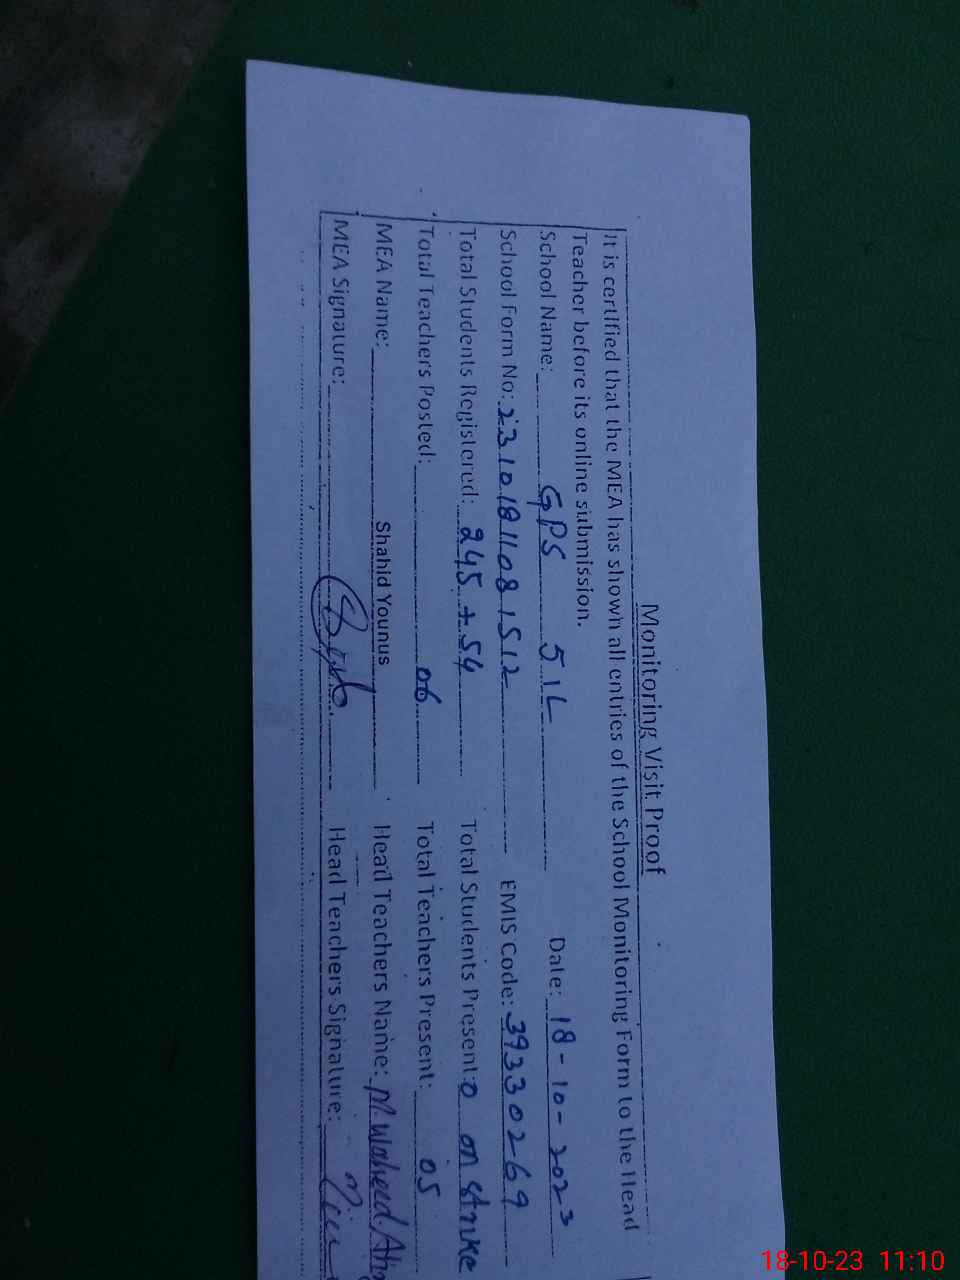 Monitoring Visit Proof
It is certified that the MEA has shown all entries of the School Monitoring Form to the Head
Teacher before its online submission.
School Name: GPS 51L Date: 18-10-2023
School Form No: 23101811081512 EMIS Code: 39330269
Total Students Registered: 245 + 54 Total Students Present: 0 on strike
Total Teachers Posted: 06 Total Teachers Present: 05
MEA Name: Shahid Younus Head Teachers Name: M. Waheed
MEA Signature: Head Teachers Signature:
18-10-23 11:10